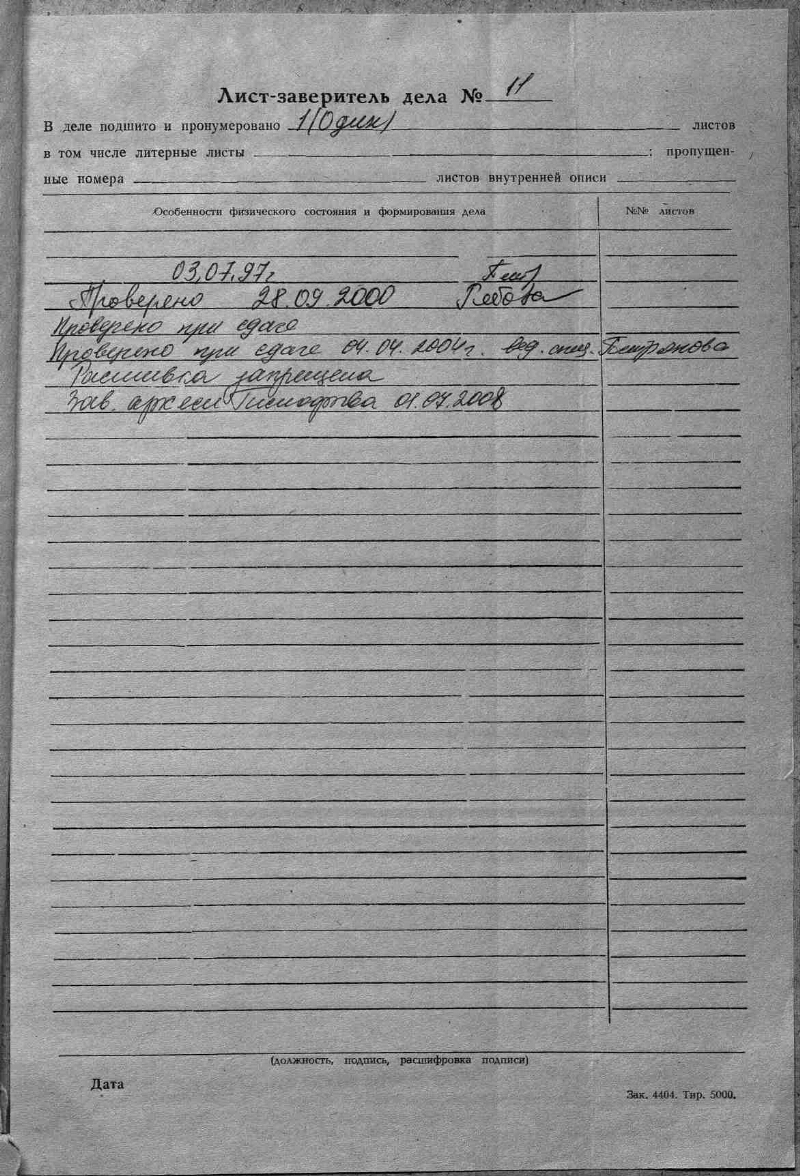 Лист-заверитель дела № 11
В деле подшито и пронумеровано 1 (Один) листов
в том числе литерные листы ; пропущен-
ные номера листов внутренней описи
Особенности физического состояния и формирования дела №№ листов
03.07.97г
Проверено 28.09.2000 Глебова
Проверено при сдаче
Проверено при сдаче 04.04.2004г. вед. спец.
Расшивка запрещена
Зав. 01.07.2008
(должность, подпись, расшифровка подписи)
Дата
Зак. 4404. Тир. 5000.